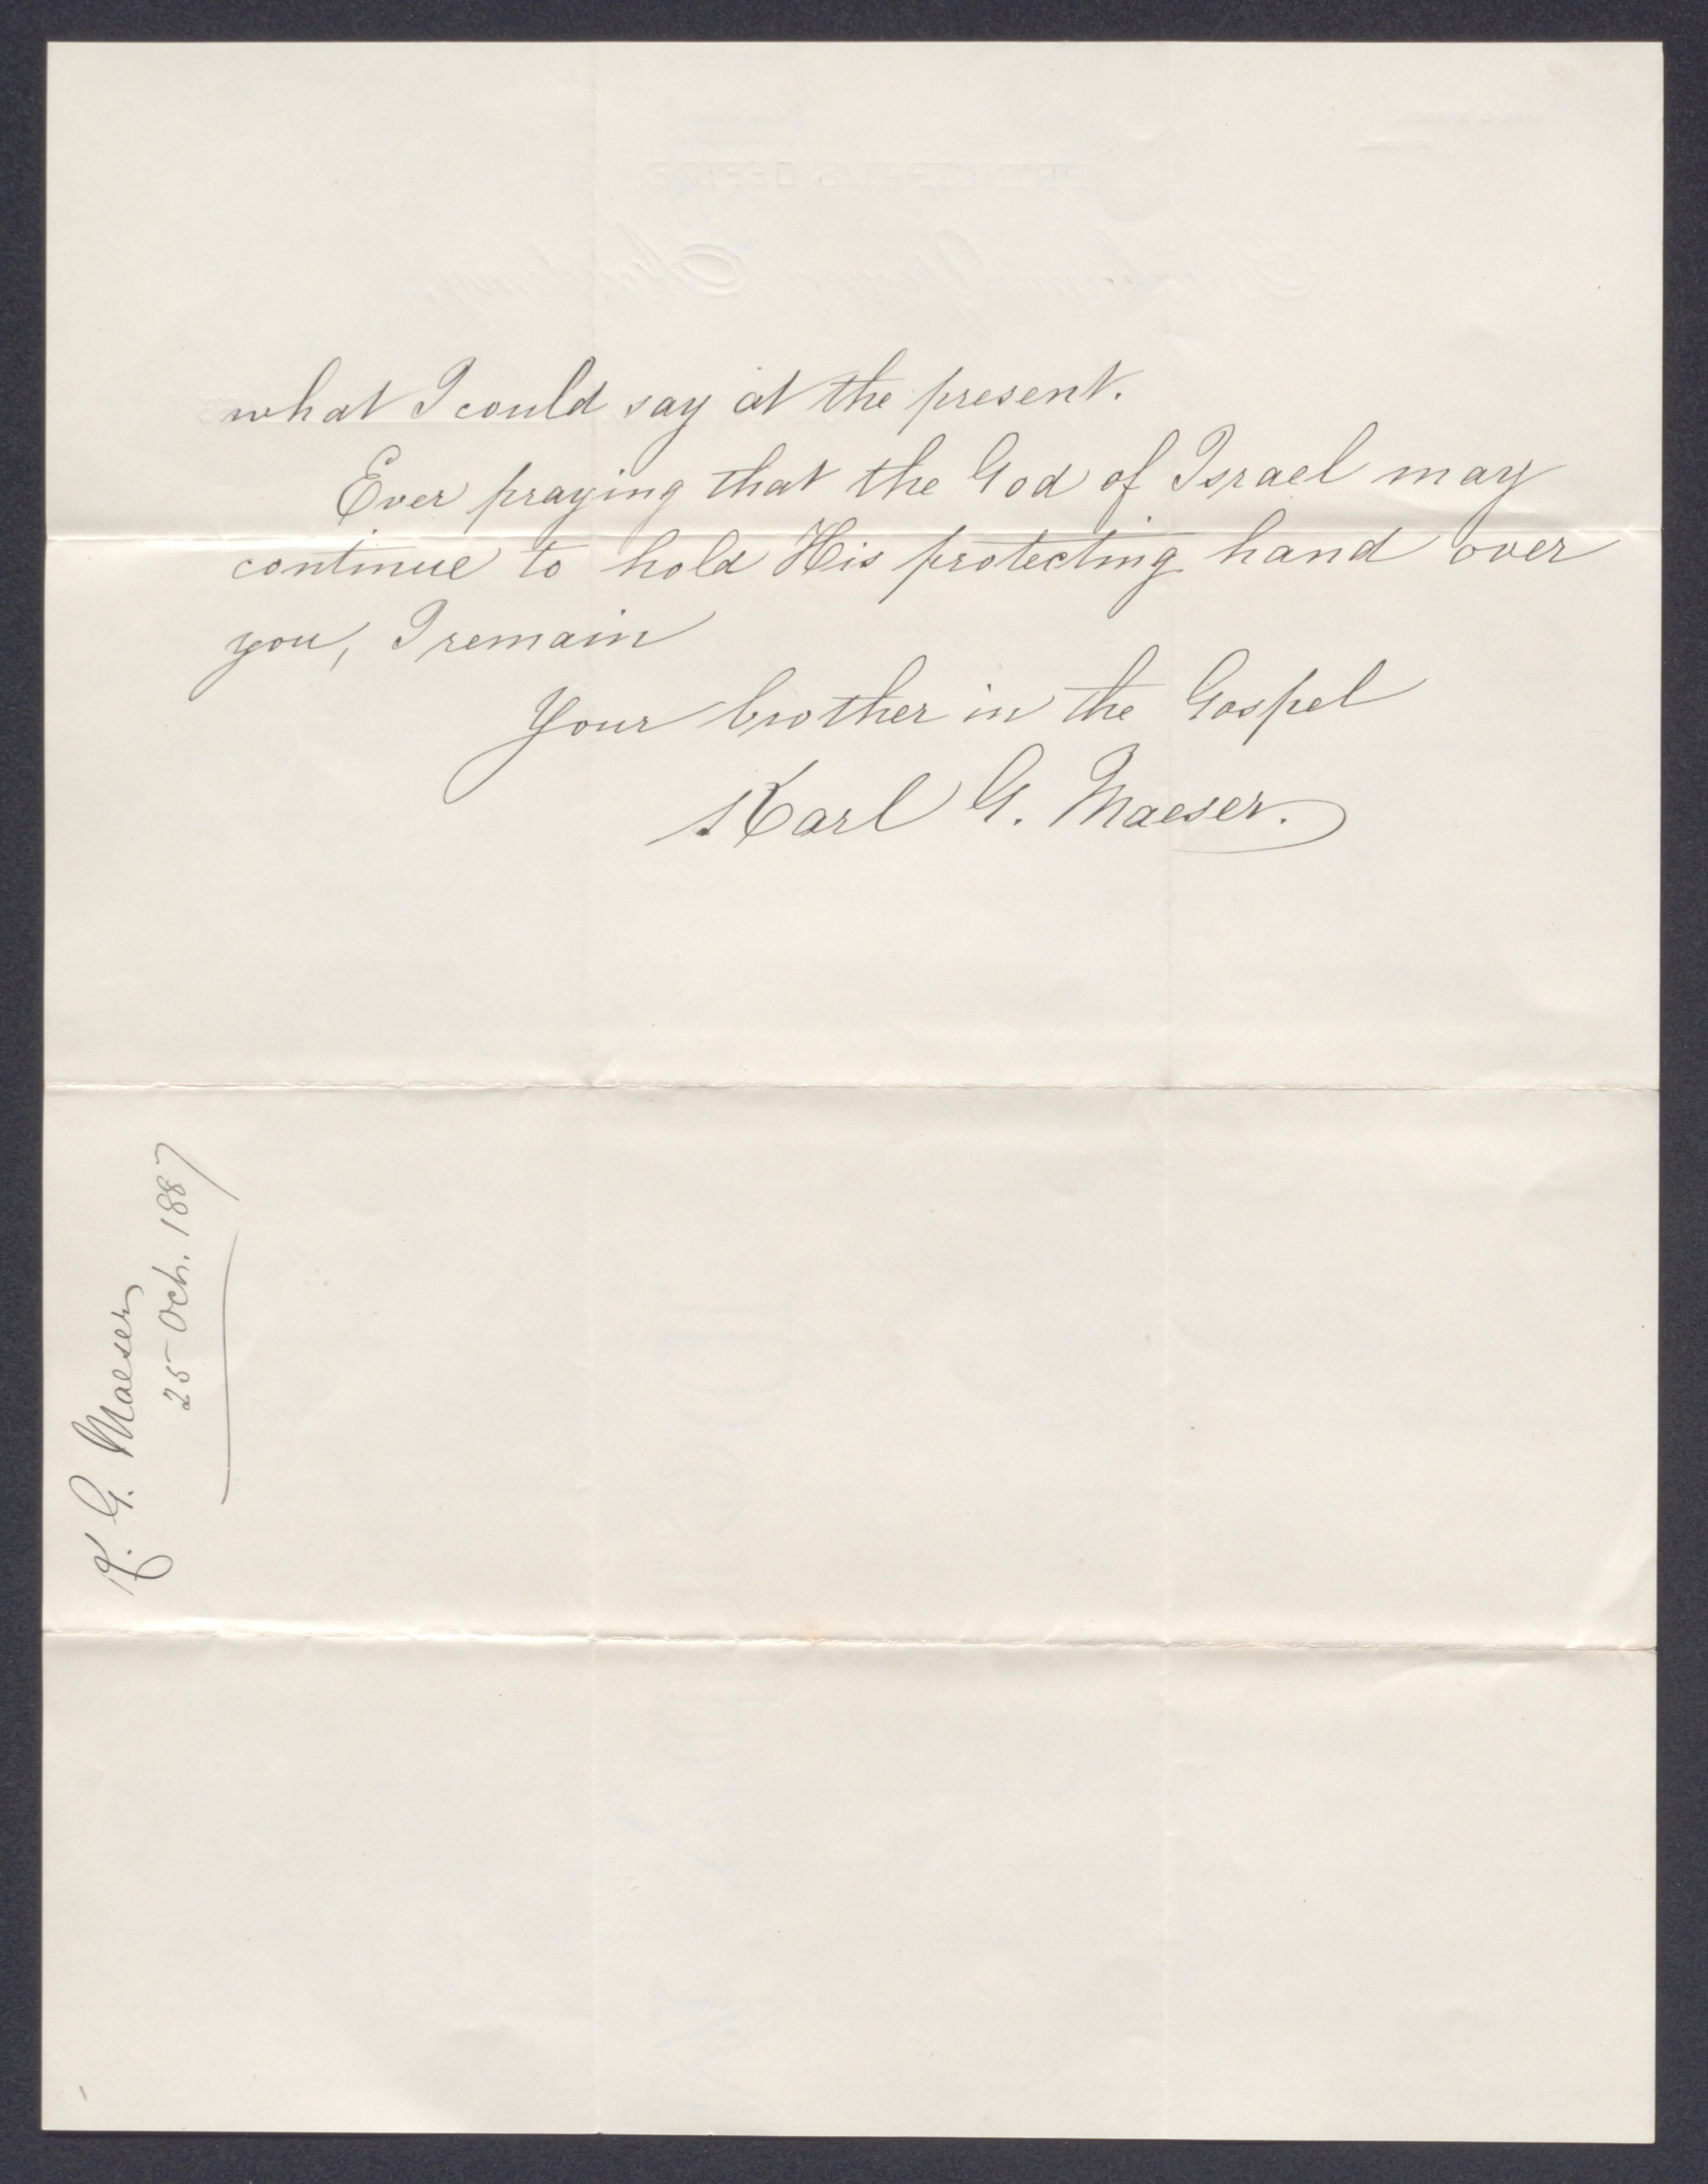 what I could say at the present.
Ever praying that the God of Israel may
continue to hold His protecting hand over
you, I remain
Your brother in the Gospel
Karl G. Maeser.
K. G. Maeser
25 Oct. 1887